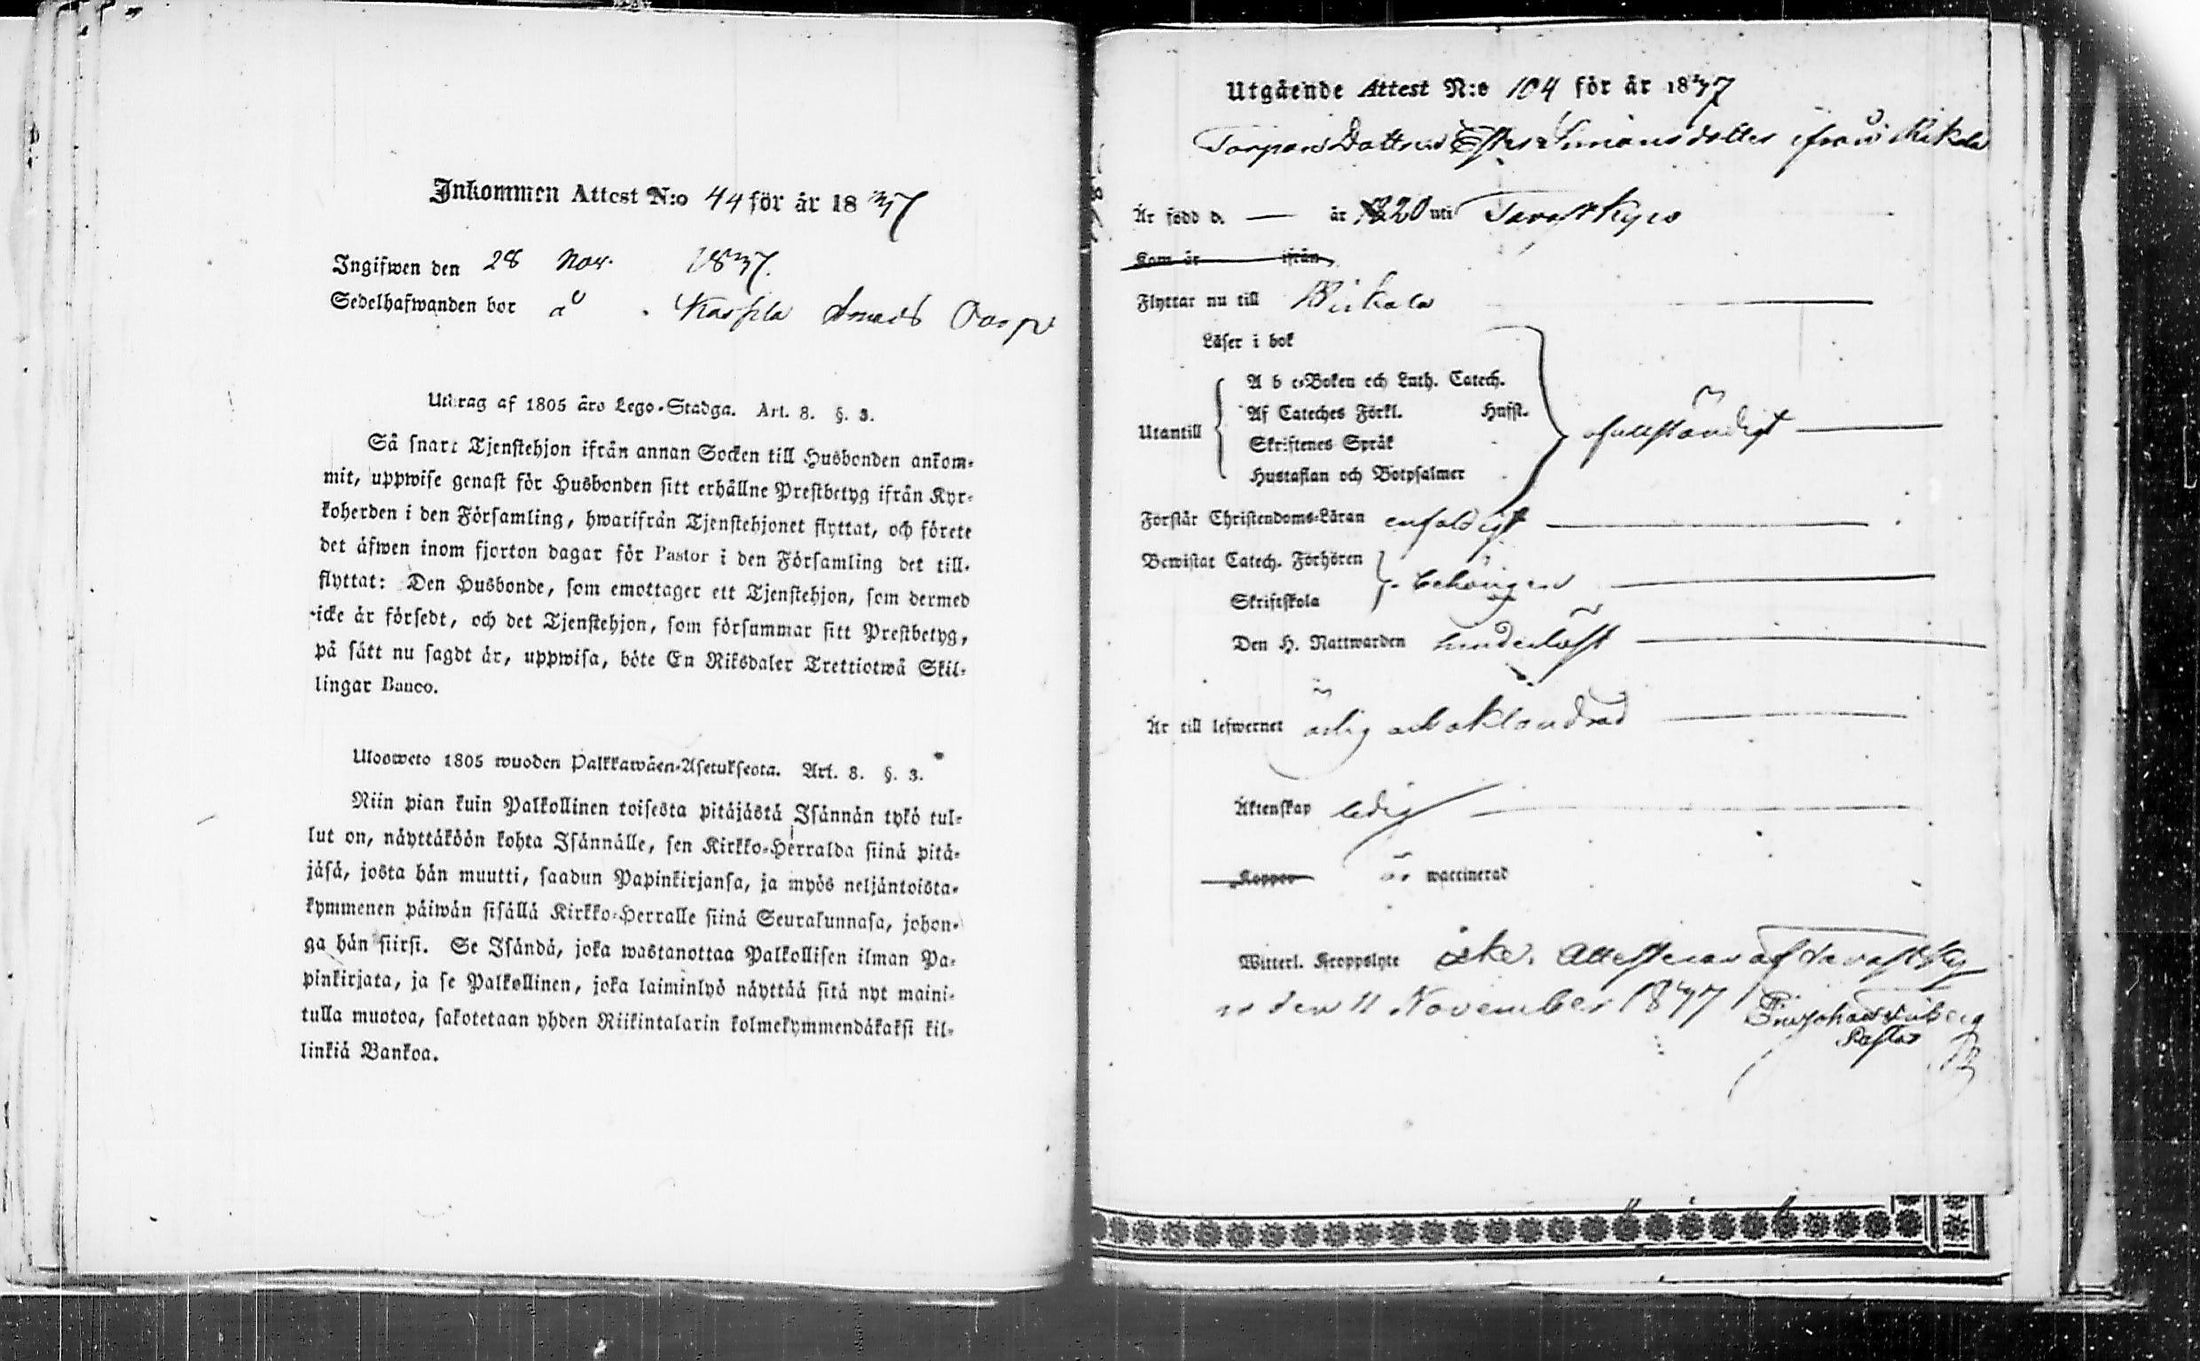 Inkommen Attest N:o 44 för år 1837
Ingifwen den 28 Nov. 1837.
Sedelhafwanden bor å
Utdrag af 1805 års Lego-Stadga. Art. 8. §. 3.
Så snart Tjenstehjon ifrån annan Socken till Husbonden ankom-
mit, uppwise genast för Husbonden sitt erhållne Prestbetyg ifrån Kyr-
koherden i den Församling, hwarifrån Tjenstehjonet flyttat, och förete
det äfwen inom fjorton dagar för Pastor i den Församling det till-
flyttat: Den Husbonde, som emottager ett Tjenstehjon, som dermed
icke är försedt, och det Tjenstehjon, som försummar sitt Prestbetyg,
på sätt nu sagdt är, uppwisa, böte En Riksdaler Trettiotwå Skil-
lingar Banco.
Ulosweto 1805 wuoden Palkkawäen-Asetuksesta. Art. 8. §. 3.
Niin pian kuin Palkollinen toisesta pitäjästä Isännän tykö tul-
lut on, näyttäköön kohta Isännälle, sen Kirkko-Herralda siinä pitä-
jäsä, josta hän muutti, saadun Papinkirjansa, ja myös neljäntoista-
kymmenen päiwän sisällä Kirkko-Herralle siinä Seurakunnasa, johon-
ga hän siirsi. Se Isändä, joka wastanottaa Palkollisen ilman Pa-
pinkirjata, ja se Palkollinen, joka laiminlyö näyttää sitä nyt maini-
tulla muotoa, sakotetaan yhden Riikintalarin kolmekymmendäkaksi kil-
linkiä Bankoa.
Utgående Attest N:o 104 för år 1837
Torpars Dottren Ester Simonsdotter ifrån
Är född d. — år 1820 uti Tavastkyro
Kom år ifrån
Flyttar nu till Birkala
Läser i bok
A b c-Boken och Luth. Catech.
Af Cateches Förkl. Husst.
Utantill
Skriftenes Språk
fullständigt
Hustaflan och Botpsalmer
Förstår Christendoms-Läran enfaldigt
Bewistat Catech. Förhören
behörigen
Skriftskola
Den H. Nattwarden hinderlöst
Är till lefwernet ärlig och oklandrad
Äktenskap ledig
Koppor är waccinerad
Witterl. Kroppslyte icke. Attesteras af Tavastky
ro den 11 November 1837
Pastor